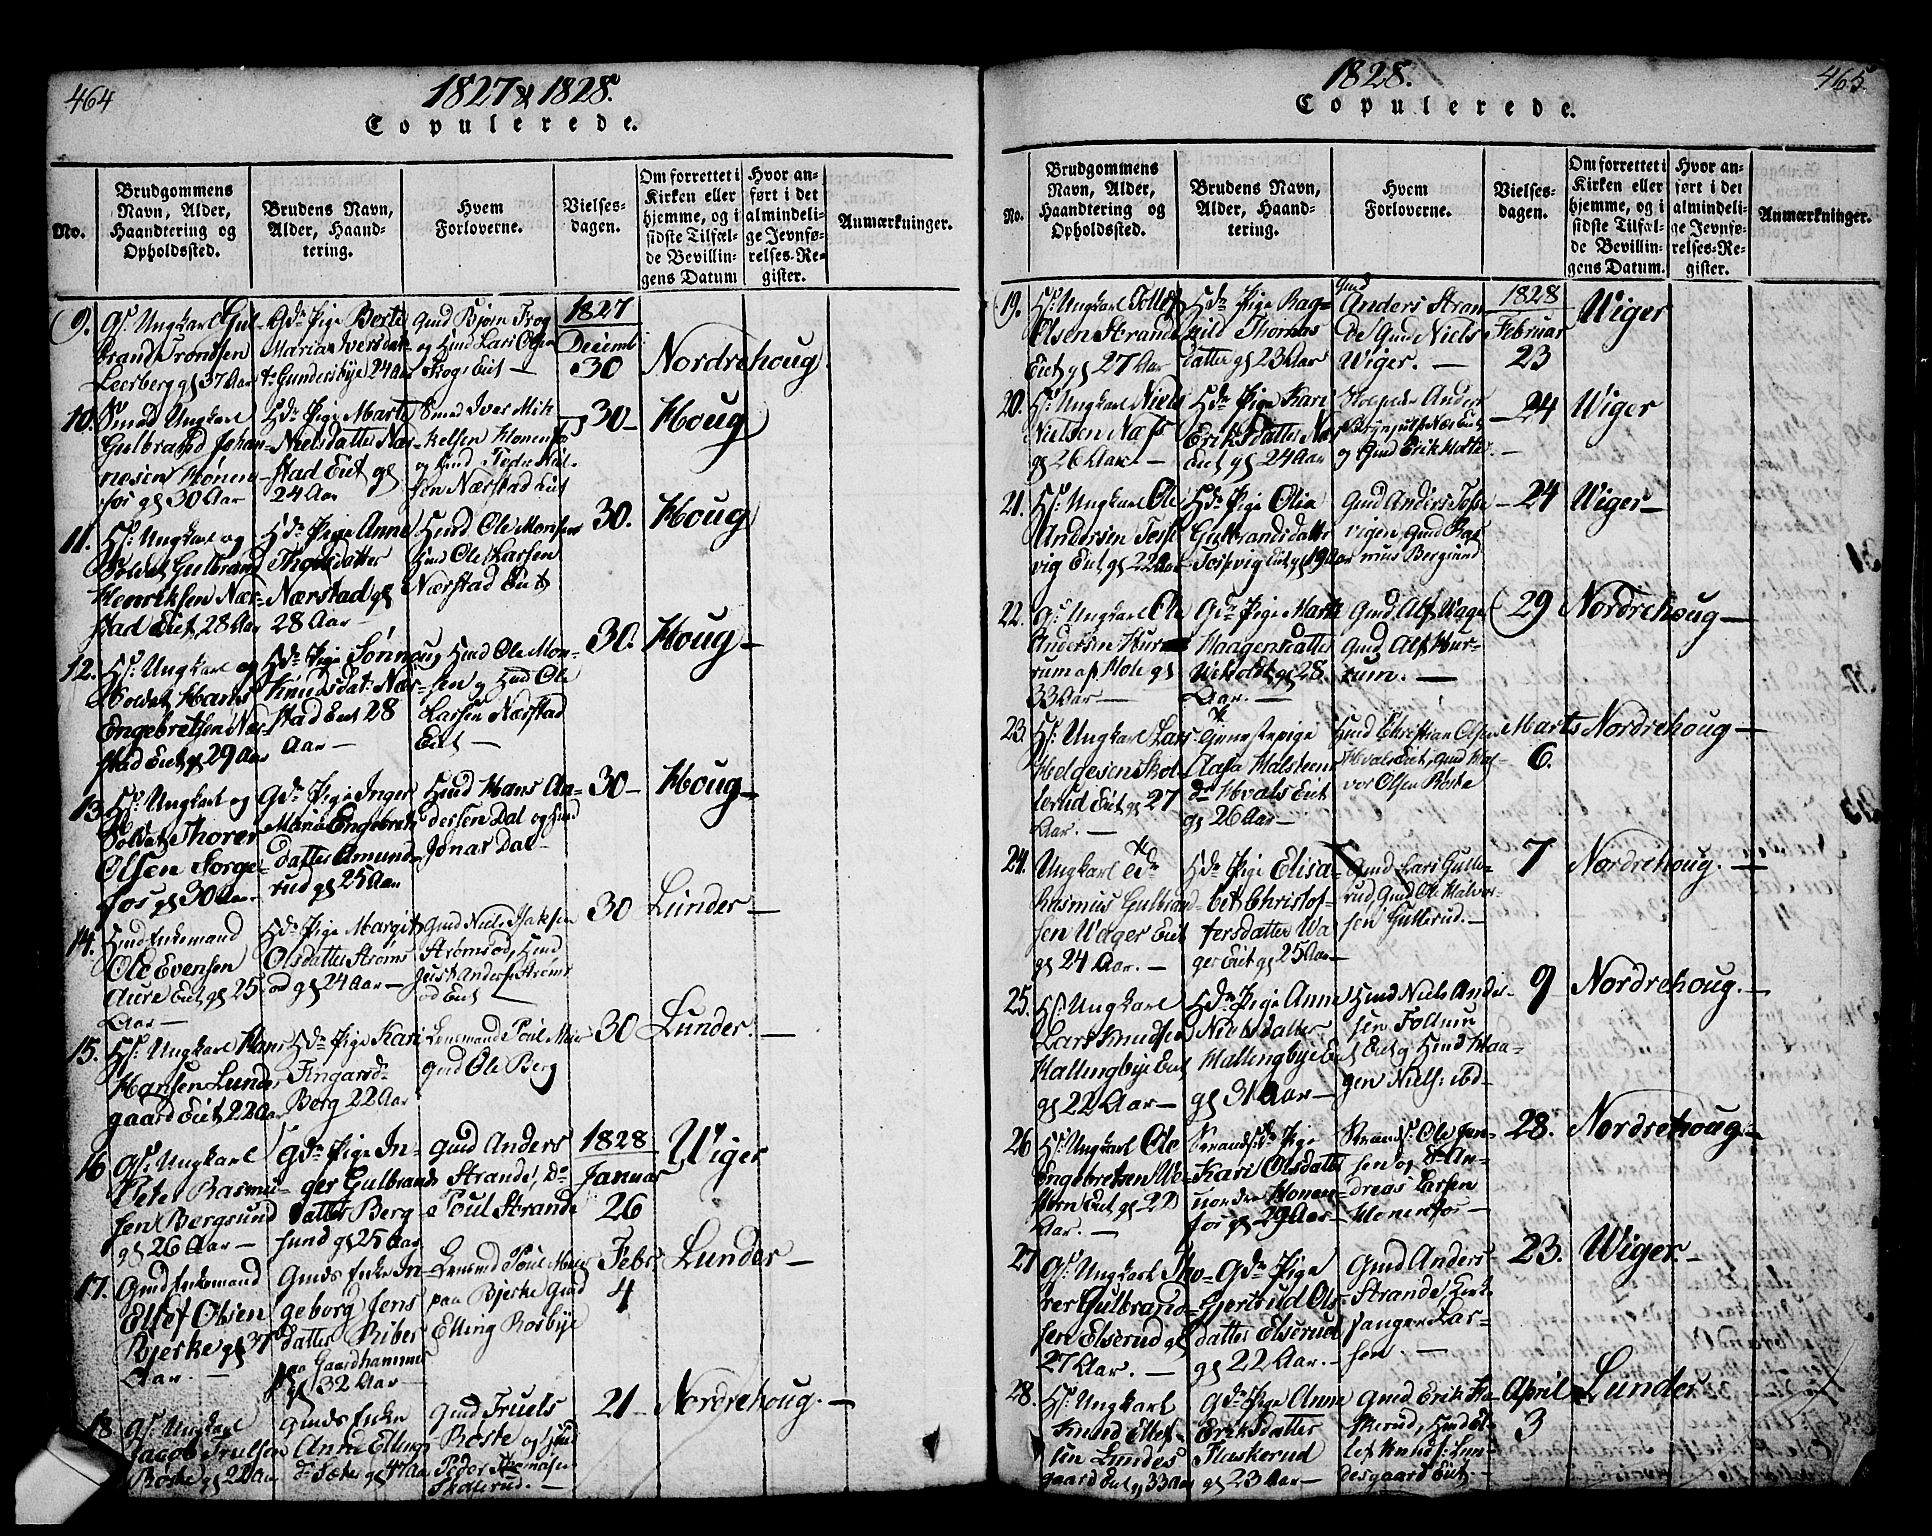 464
1827 & 1828.
Copulerede.
No.
Brudgommens
Navn, Alder,
Haandtering og
Opholdssted.
Brudens Navn,
Alder, Haand-
tering.
Hvem
Forloverne.
Vielses-
dagen.
Om forrettet i
Kirken eller
hjemme, og i
sidste Tilfæl-
de Bevillin-
gens Datum
Hvor an-
ført i det
almindeli-
ge Jevnfø-
relses-Re-
gister.
Anmærkninger.
9.
Gs. Ungkarl Gul-
brand Tronsen
Leerberg gl 37 Aar
Gdr Pige Berte
Maria Iversdat-
tr Gundersbye 24 aar
Gmd Bjørn Frog
og Hmd Lars Olsen
Frogs Eiet —
1827
Decemb
30
Nordrehoug
10.
Smed Ungkarl
Gulbrand Johan-
nesen Hønen-
fos gl 30 Aar
Hdr Pige Marte
Nielsdatter Nær-
stad Eiet gl
24 Aar
Smed Iver Mik-
kelsen Honenfos
og Hmd Peder Niel-
sen Nærstad Eiet
30 —
Houg
11.
Hs. Ungkarl og
Soldat Gulbrand
Henriksen Nær-
stad Eiet, 28 Aar
Hdr Pige Anne
Thorsdatter
Nærstad gl
28 Aar —
Hmd Ole Monsen
Hmd Ole Larsen
Nærstad Eiet
30.
Houg
12.
Hs. Ungkarl og
Soldat Hans
Engebretsen Nær-
stad Eiet gl 29 Aar
Hdr Pige Sønnoug
Knudsdat: Nær-
stad Eiet 28
Aar —
Hmd Ole Mon-
sen og Hmd Ole
Larsen Nærstad
Eiet —
30.
Houg —
13.
Hs. Ungkarl og
Soldat Thorer
Olsen Sorge-
fos gl 30 Aar.
Gdr Pige Inger
Maria Engebrets
datter Amund-
rud gl 25 Aar
Hmd Hans An-
dersen Dal og Hmd
Jonas Dal —
30 —
Houg —
14.
Hmd Enkemand
Ole Evensen
Aure Eiet gl 25
Aar —
Hdr Pige Margit
Olsdatter Strøms-
od gl 24 Aar —
Gmd Niels Isaksen
Strømsod, Hmd
Just Anders: Strøms
od Eiet
30
Lunder —
15.
Hs. Ungkarl Hans
Hansen Lunde-
gaard Eiet 22 Aar
Hdr Pige Kari
Fingarsdr
Berg 22 Aar
Lensmand Poul Moe
Gmd Ole Berg
30
Lunder. —
16
Gs. Ungkarl
Peter Rasmu-
sen Bergsund
gl 26 Aar —
Gdr Pige In-
ger Gulbrands
datter Berg-
sund gl 25 Aar
Gmd Anders
Strande, Do
Poul Strande
1828
Januar
26
Wiger
17.
Gmd Enkemand
Ellef Olsen
Bjerke gl 37
Aar. —
Gmds Enke In-
geborg Jens
datter Riber
paa Gaardhammer
gl 32 Aar —
Lensmd Poul Moe
paa Bjerke Gmd
Elling Rosbye
Febr.
4
Lunder —
18
Gs. Ungkarl
Jacob Trulsen
Røste gl 22 Aar
Gmds Enke
Anne Ellings
dr Sæte gl 47 Aar
Gmd Truels
Røste og Hmd
Peder Thomasen
Skolerud. —
21 —
Nordrehoug. —
1828.
465
Copulerede.
No.
Brudgommens
Navn, Alder,
Haandtering og
Opholdssted.
Brudens Navn,
Alder, Haand-
tering.
Hvem
Forloverne.
Vielses-
dagen.
Om forrettet i
Kirken eller
hjemme, og i
sidste Tilfæl-
de Bevillin-
gens Datum.
Hvor an-
ført i det
almindeli-
ge Jevnfø-
relses-Re-
gister.
Anmærkninger.
19.
Hs. Ungkarl Tollef
Olsen Strande
Eiet gl 27 Aar
Hdr Pige Rag-
nild Thomas
datter gl 23 Aar
Gmd
Anders Stran
de Gmd Niels
Wiger. —
1828
Februar
23
Wiger
20.
Hs. Ungkarl Niels
Nielsen Næss
gl 26 Aar. —
Hdr Pige Kari
Eriksdatter Næs
Eiet gl 24 Aar
Anders
Næs Eiet
og Gmd Erik
24
Wiger
21.
Hs. Ungkarl Ole
Andersen Tose-
vig Eiet gl 22 Aar
Hdr Pige Olia
Gulbrandsdatter
Tosevig Eiet gl 19 Aar
Gmd Anders Tose
vigen Gmd Ras
mus Bergsund
24
Wiger —
22.
Gs. Ungkarl Ole
Andersen Hur-
rum af Hole gl
33 Aar —
Gdr Pige Marte
Haagensdatter
Veholdt gl 28
Aar. —
Gmd Alf Wager
Gmd Alf Hur-
rum. —
29
Nordrehoug —
23.
Hs. Ungkarl Lars
Helgesen Skol-
lerud Eiet gl 27
Aar. —
Tjenestepige
Aasa Halsteens
dr Hvals Eiet
gl 26 Aar —
Hmd Christian Olsen
Hvals Eiet, Gmd Hal-
vor Olsen Røste
Marts
6.
Nordrehoug —
24.
Ungkarl
Rasmus Gulbrand-
sen Wager Eiet
gl 24 Aar. —
Hdr Pige Elisa-
bet Christof-
fersdatter Wa
ger Eiet gl 25 Aar —
Gmd Lars Gulle-
rud, Gmd Ole Halvor-
sen Gullerud. —
7
Nordrehoug. —
25.
Hs. Ungkarl
Lars Knudsen
Hallingbye Eiet
gl 22 Aar —
Hdr Pige Anne
Nielsdatter
Hallingbye Ei
gl 31 Aar —
Hmd Niels Ander-
sen Follum
Eiet og Hmd Haa-
gen Niels: ibd —
9
Nordrehoug. —
26
Hs. Ungkarl Ole
Engebretsen We-
hørn Eiet gl 22
Aar. —
Strandsdr Pige
Kari Olsdatter
nordre Honen-
fos gl 29 Aar —
Strands: Ole Jan-
sen og Do An-
dreas Larsen
Honenfos —
28.
Nordrehoug —
27
Gs. Ungkarl Tho-
rer Gulbrand-
sen Elserud gl
27 Aar. —
Gdr Pige
Gjertrud Ols-
datter Elserud
gl 22 Aar. —
Gmd Anders
Strande, Kirke
sanger Lar-
sen. —
23.
Wiger. —
28.
Hs. Ungkarl
Knud Ellef-
sen Lundes
gaard Eiet gl 33 Aar
Gdr Pige Anne
Eriksdatter
Flaskerud
gl 23 Aar —
Gmd Erik Fla
skerud, Hmd El-
lef Knuds: Lun-
desgaard Eiet. —
April
3
Lunder